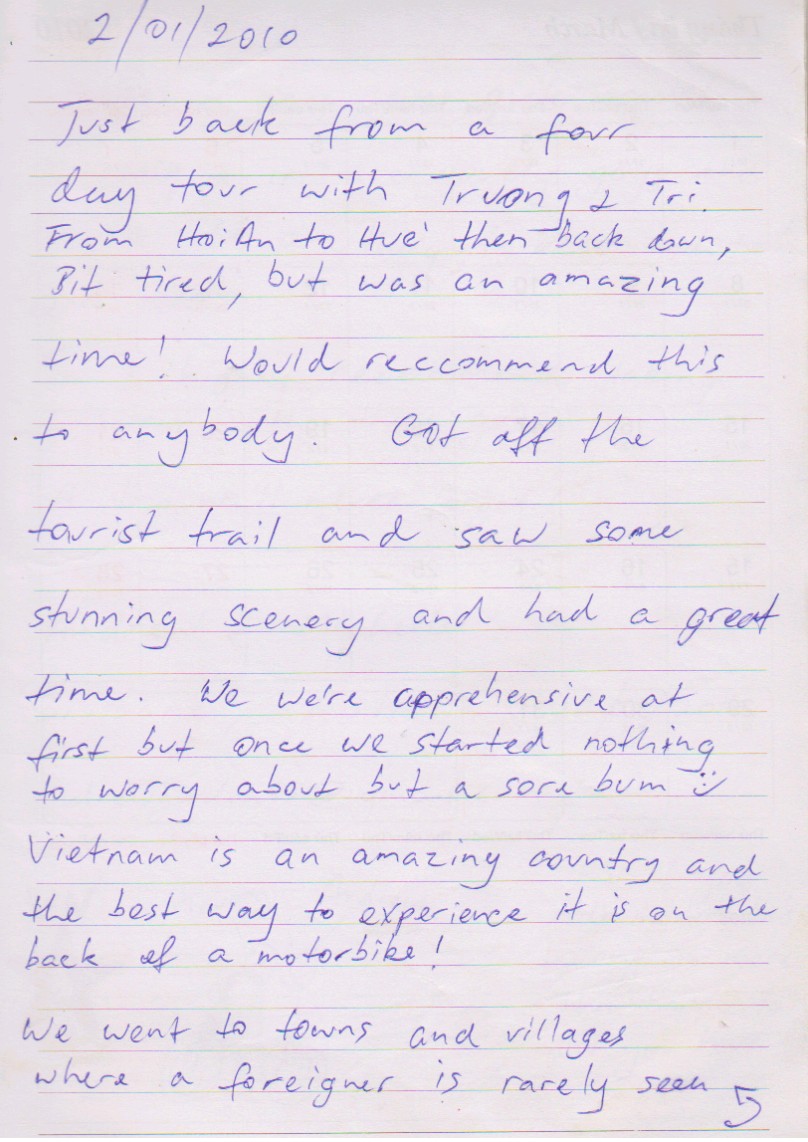 2/01/2010
Just back from a four
day tour with Truong & Tri.
From HoiAn to Hue' then back down,
Bit tired, but was an amazing
time! Would reccommend this
to anybody. Got off the
tourist trail and saw some
stunning scenery and had a great
time. We we're apprehensive at
first but once we started nothing
to worry about but a sore bum :)
Vietnam is an amazing country and
the best way to experience it is on the
back of a motorbike!
We went to towns and villages
where a foreigner is rarely seen